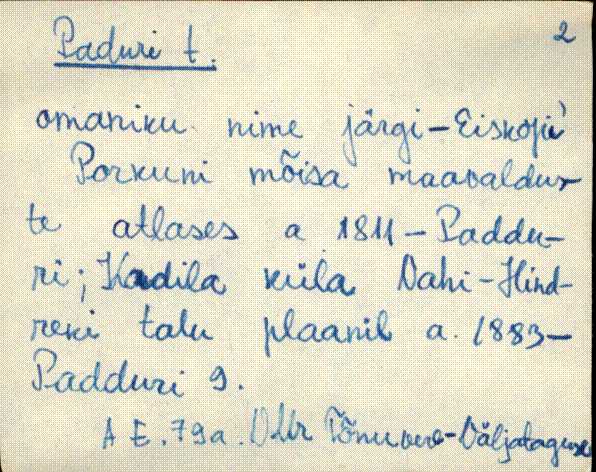 Paduri t. 2
omaniku nime järgi – Eiskopi
Porkuni mõisa maavaldus-
te atlases a 1811 – Paddu-
ri; Kadila küla Vahi-Hind-
reki talu plaanil a. 1883 –
Padduri 9.
A E. 79a. VMr Tõnuvere-Väljataguse